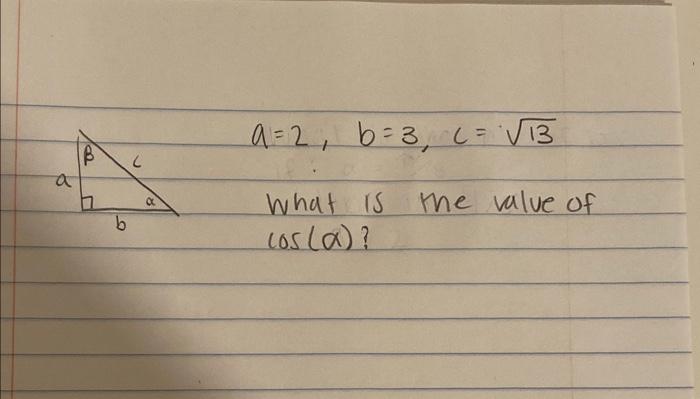 a = 2, b = 3, c = √13
β
c
a
α
b
What is the value of
cos(α)?